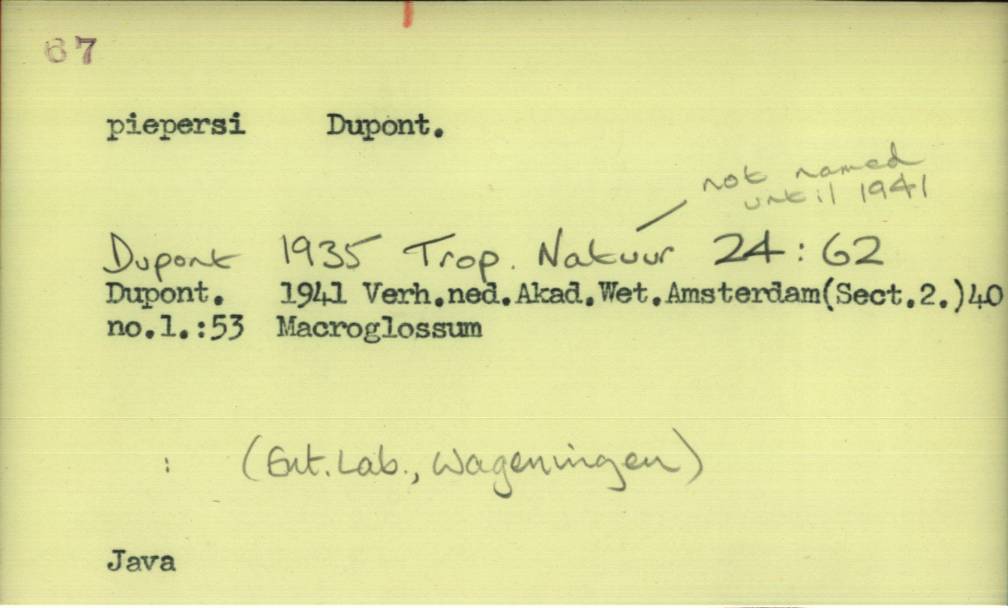 67
piepersi Dupont.
not named
until 1941
Dupont 1935 Trop. Natuur 24 : 62
Dupont. 1941 Verh.ned.Akad.Wet.Amsterdam(Sect.2.)40
no.1.:53 Macroglossum
: (Ent. Lab., Wageningen)
Java